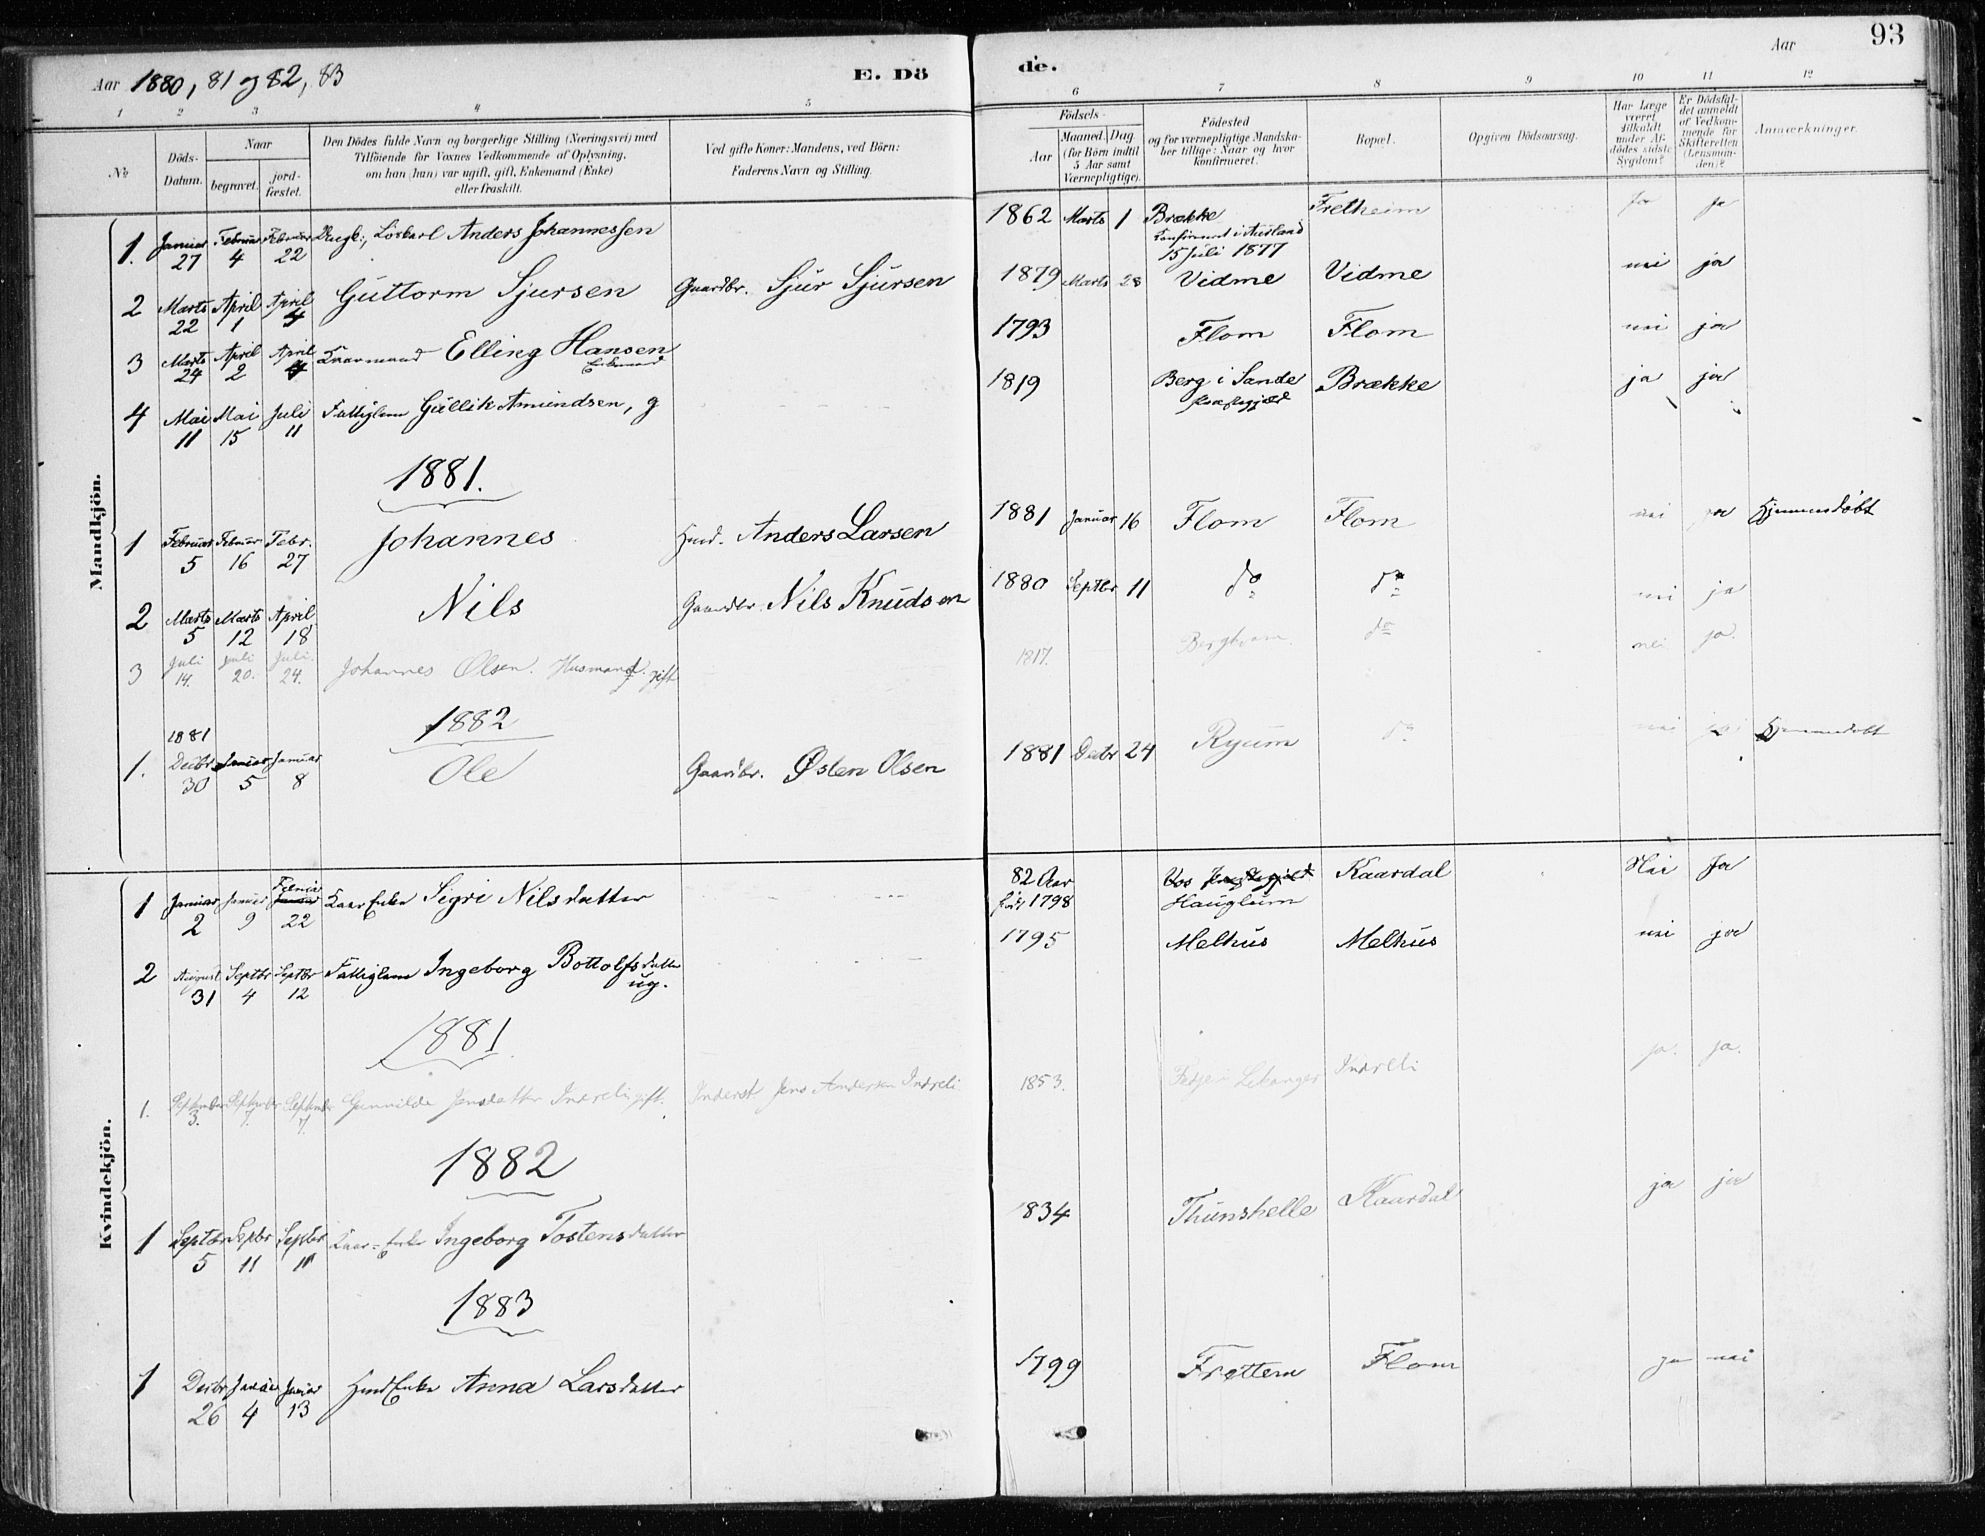 Aar 1880, 81 og 82, 83
E. Dö
de.
Aar
93
1 2 3 4 5 6 7 8 9 10 11 12
No
Döds-Datum.
Naar
begravet.
jord-fæstet.
Den Dödes fulde Navn og borgerlige Stilling (Næringsvei) med
Tilföiende for Voxnes Vedkommende af Oplysning,
om han (hun) var ugift, gift, Enkemand (Enke)
eller fraskilt.
Ved gifte Koner: Mandens, ved Börn:
Faderens Navn og Stilling.
Födsels-
Aar
Maaned. Dag
(for Börn indtil
5 Aar samt
Værnepligtige).
Födested
og for værnepligtige Mandska-
ber tillige: Naar og hvor
konfirmeret.
Bopæl.
Opgiven Dödsaarsag.
Har Læge
været
tilkaldt
under Af-
dödes sidste
Sygdom?
Er Dödsfal-
det anmeldt
af Vedkom-
mende for
Skifteretten
(Lensman-
den)?
Anmærkninger.
Mandkjön.
1. Januar 27 Februar 4 Februar 22 Ungk:, Löskarl Anders Johannessen 1862 Marts 1 Brække Fretheim Ja ja
Konfirmeret i Aurland
15 Juli 1877
2 Marts 22 April 1 April 4 Guttorm Sjursen Gaardbr. Sjur Sjursen 1879 Marts 28 Vidme Vidme nei ja
3 Marts 24 April 2 April 4 Kaarmand Elling Hansen 1793 Flom Flom nei ja
Enkemand
4 Mai 11 Mai 15 Juli 11 Fattiglem Gullik Amundsen, g 1819 Berg i Sande Brække ja ja
Præstegjæld
1881.
1 Februar 5 Februar 16 Febr. 27 Johannes Husmd. Anders Larsen 1881 Januar 16 Flom Flom nei ja Hjemmedöbt
2 Marts 5 Marts 12 April 18 Nils Gaardbr. Nils Knudsen 1880 Septbr 11 do do nei ja
3 Juli 14. Juli 20. Juli. 24. Johannes Olsen. Husmand. gift 1817. Bergkvam. do nei ja.
1882
1. 1881 Decbr 30 Januar 5 Januar 8 Ole Gaardbr. Østen Olsen 1881 Decbr 24 Ryum do nei ja Hjemmedobt
Kvindekjön.
1 Januar 2 Januar 9 Februar 22 Kaar Enke Sigri Nilsdatter 82 Aar Vos Præstegjæld Kaardal Nei Ja
född 1798 Hauglum
2 August 31 Septbr 4 Septbr 12 Fattiglem Ingeborg Bottolfsdatter 1795 Melhus Melhus nei ja
ug.
1881
1. September 3. September 7. September 7. Gunnilda Jensdatter Indreli gift. Inderst Jens Andersen Indreli 1853. Fedje i Lekanger Indreli ja. ja.
1882
1 Septbr 5 Septbr 11 Septbr 11 Kaar-Enke Ingeborg Tostensdatter 1834 Thunshelle Kaardal ja ja
1883
1 Decbr 26 Januar 4 Januar 13 Husmd Enke Anna Larsdatter 1799 Frettem Flom ja nei